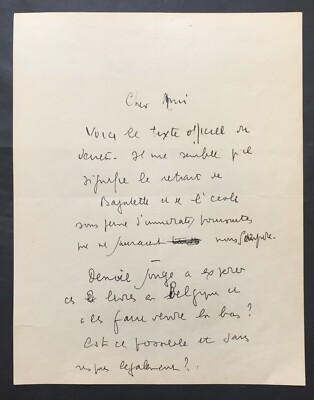 Cher Ami
Voici le texte officiel du
décret. Il me semble qu'il
signifie le retrait de
Bagatelle et de l'école
sous peine d'immédiates poursuites
qui ne sauraient nous
Denoël songe à exporter
ces livres en Belgique et
à les faire vendre en bas ?
Est ce possible et sans
risques également ?